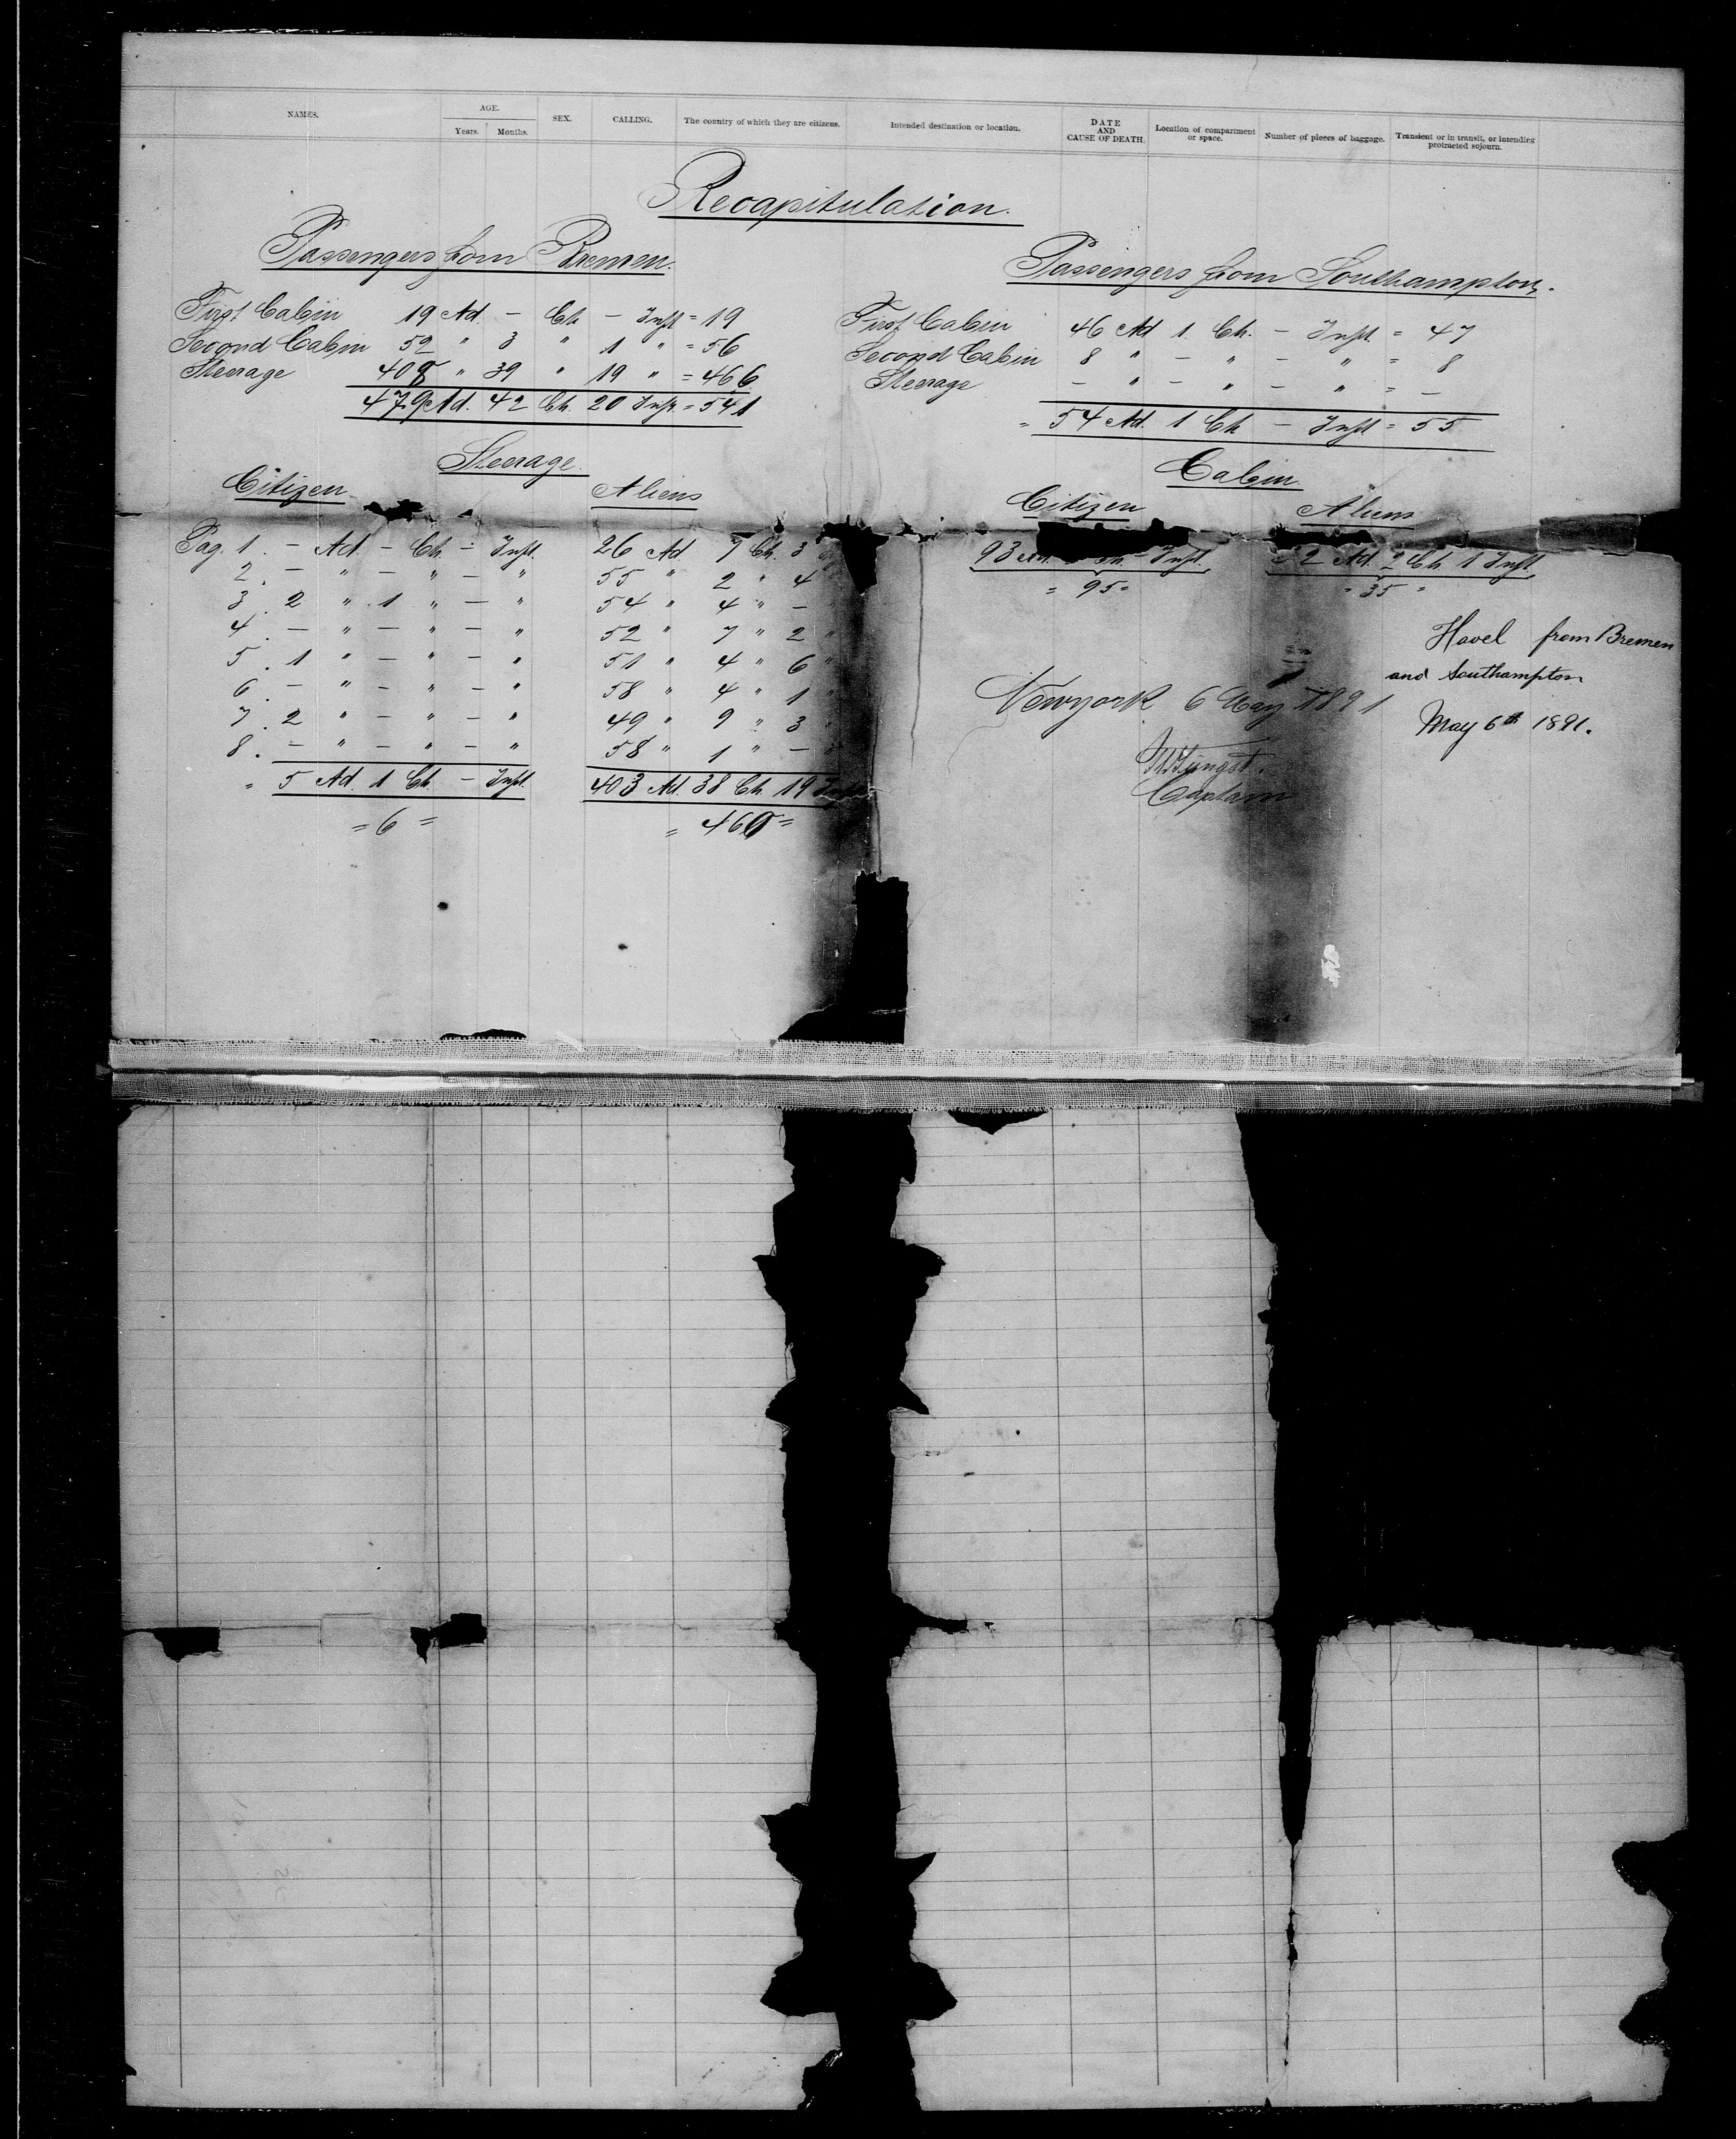 NAMES.
AGE.
Years. Months.
SEX.
CALLING.
The country of which they are citizens.
Intended destination or location.
DATE
AND
CAUSE OF DEATH.
Location of compartment
or space.
Number of pieces of baggage.
Transient or in transit, or intending
protracted sojourn.
Recapitulation.
Passengers from Bremen.
First Cabin 19 Ad. – Ch – Inft = 19
Second Cabin 52 " 3 " 1 " = 56
Steerage 408 " 39 " 19 " = 466
479 Ad. 42 Ch. 20 Inft = 541
Passengers from Southampton.
First Cabin 46 Ad 1 Ch. – Inft = 47
Second Cabin 8 " – " – " = 8
Steerage – " – " – " = –
= 54 Ad. 1 Ch – Inft = 55
Steerage
Citizen Aliens
Pag. 1. – Ad – Ch. – Inft. 26 Ad 7 Ch. 3
2. – " – " – " 55 " 2 " 4
3. 2 " 1 " – " 54 " 4 " – "
4. – " – " – " 52 " 7 " 2 "
5. 1 " – " – " 51 " 4 " 6 "
6. – " – " – " 58 " 4 " 1 "
7. 2 " – " – " 49 " 9 " 3 "
8. – " – " – " 58 " 1 " – "
= 5 Ad. 1 Ch. – Inft. 403 Ad. 38 Ch. 19 Inft
= 6 = = 460 =
Cabin.
Citizen Aliens
93 Ad. Ch. – Inft. 2 Ad. 2 Ch. 1 Inft.
= 95 = = 35 =
Havel from Bremen
and Southampton
May 6th 1891.
Newyork 6 May 1891
Jüngst.
Captain